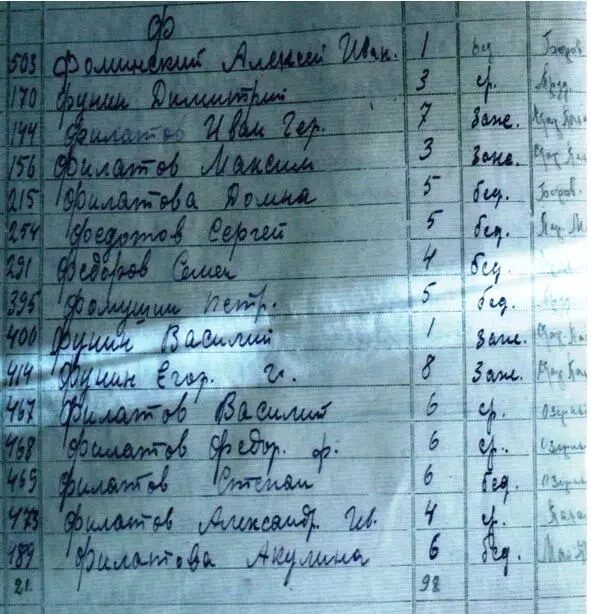 Ф
503 Фоминский Алексей Иван. 1 бед Боров
170 Фунин Димитрий 3 ср.
144 Филатов Иван Гер. 7 заж.
156 Филатов Максим 3 заж.
215 Филатова Домна 5 бед. Боров.
254 Федотов Сергей 5 бед.
291 Федоров Семен 4 бед.
395 Фомушин Петр. 5 бед.
400 Фунин Василий 1 заж.
414 Фунин Егор. И. 8 заж.
467 Филатов Василий 6 ср. озерн
468 Филатов Федор. Ф. 6 ср. озерн
469 Филатов Степан 6 бед. озерн
473 Филатов Александр. 4 ср.
489 Филатова Акулина 6 бед.
21. 98